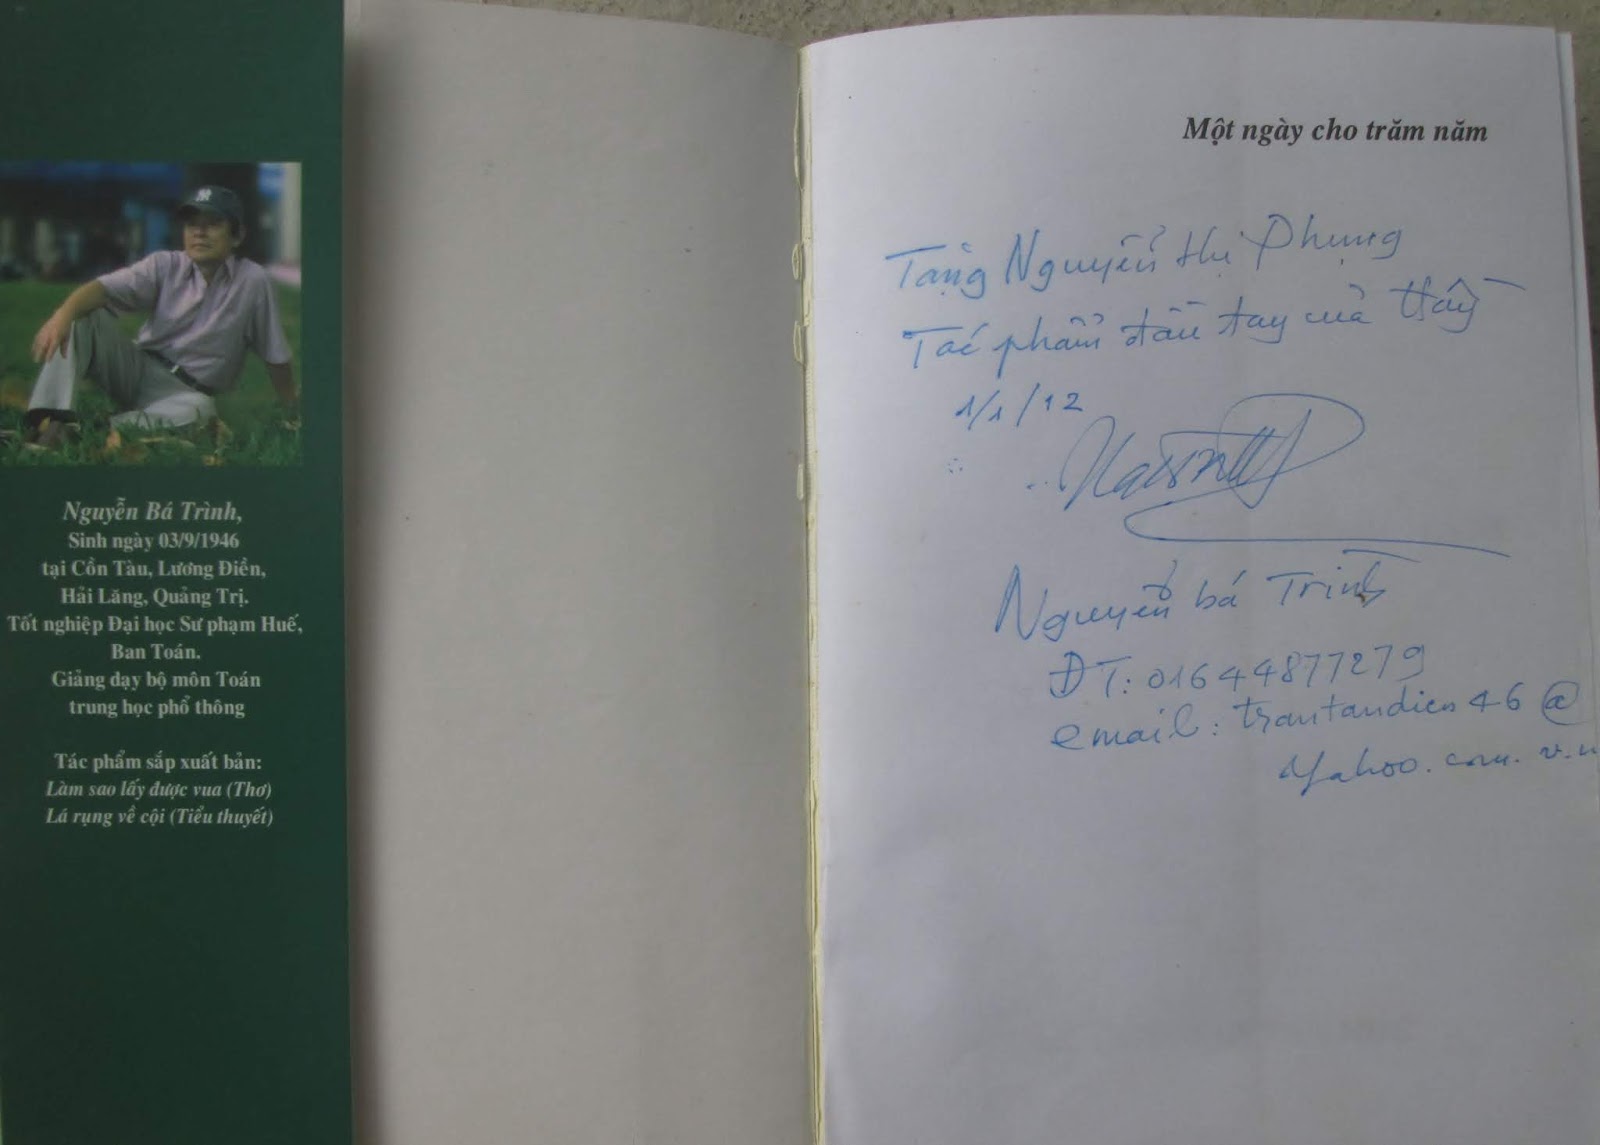 Nguyễn Bá Trình,
Sinh ngày 03/9/1946
tại Cồn Tàu, Lương Điền,
Hải Lăng, Quảng Trị.
Tốt nghiệp Đại học Sư phạm Huế,
Ban Toán.
Giảng dạy bộ môn Toán
trung học phổ thông
Tác phẩm sắp xuất bản:
Làm sao lấy được vua (Thơ)
Lá rụng về cội (Tiểu thuyết)
Một ngày cho trăm năm
Tặng Nguyễn thị Phụng
Tác phẩm đầu tay của thầy
1/1/12
Nguyễn bá Trình
ĐT: 01644877279
email: trantandien46@
yahoo.com.vn